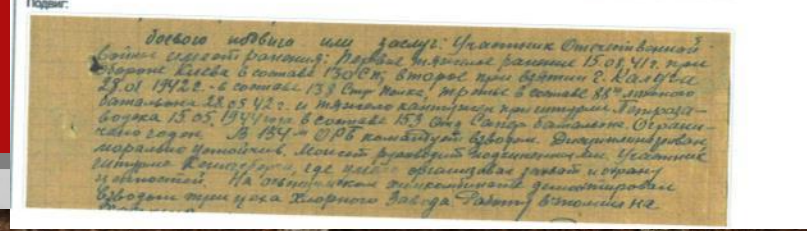 Подвиг:
боевого подвига или заслуг: Участник Отечественной
войны имеет ранения: Первое тяжелое ранение 15.08.41г. при
обороне Киева в составе 130 СП; второе при взятии г. Калуги
28.01 1942г. в составе 138 Стр полка, третье в составе 88го
батальона 28.05 42г. и тяжело контужен при штурме Петроза-
водска 15.05.1944 года в составе 153 Отд Сапер батальона. Ограни-
чено годен. В 134-м ОРБ командует взводом. Дисциплинирован,
морально устойчив. Может руководить подчиненными. Участник
штурма где организовал захват и охрану
На демонтировал
взводом три цеха Хлорного Завода. Работу выполнил на